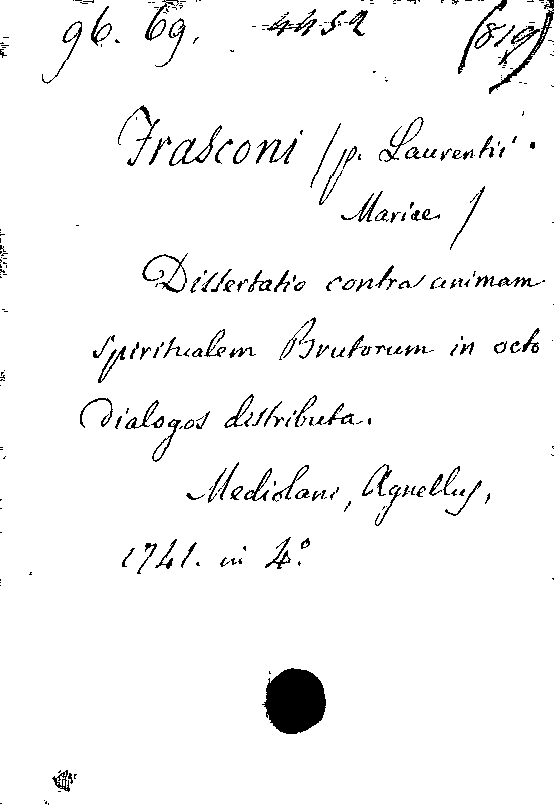 96. 69. 4452 (819)
Frasconi / p. Laurentii
Mariae /
Dissertatio contra animam
spiritualem Brutorum in octo
Dialogos distributa.
Mediolani, Agnellus,
1741. in 4.º